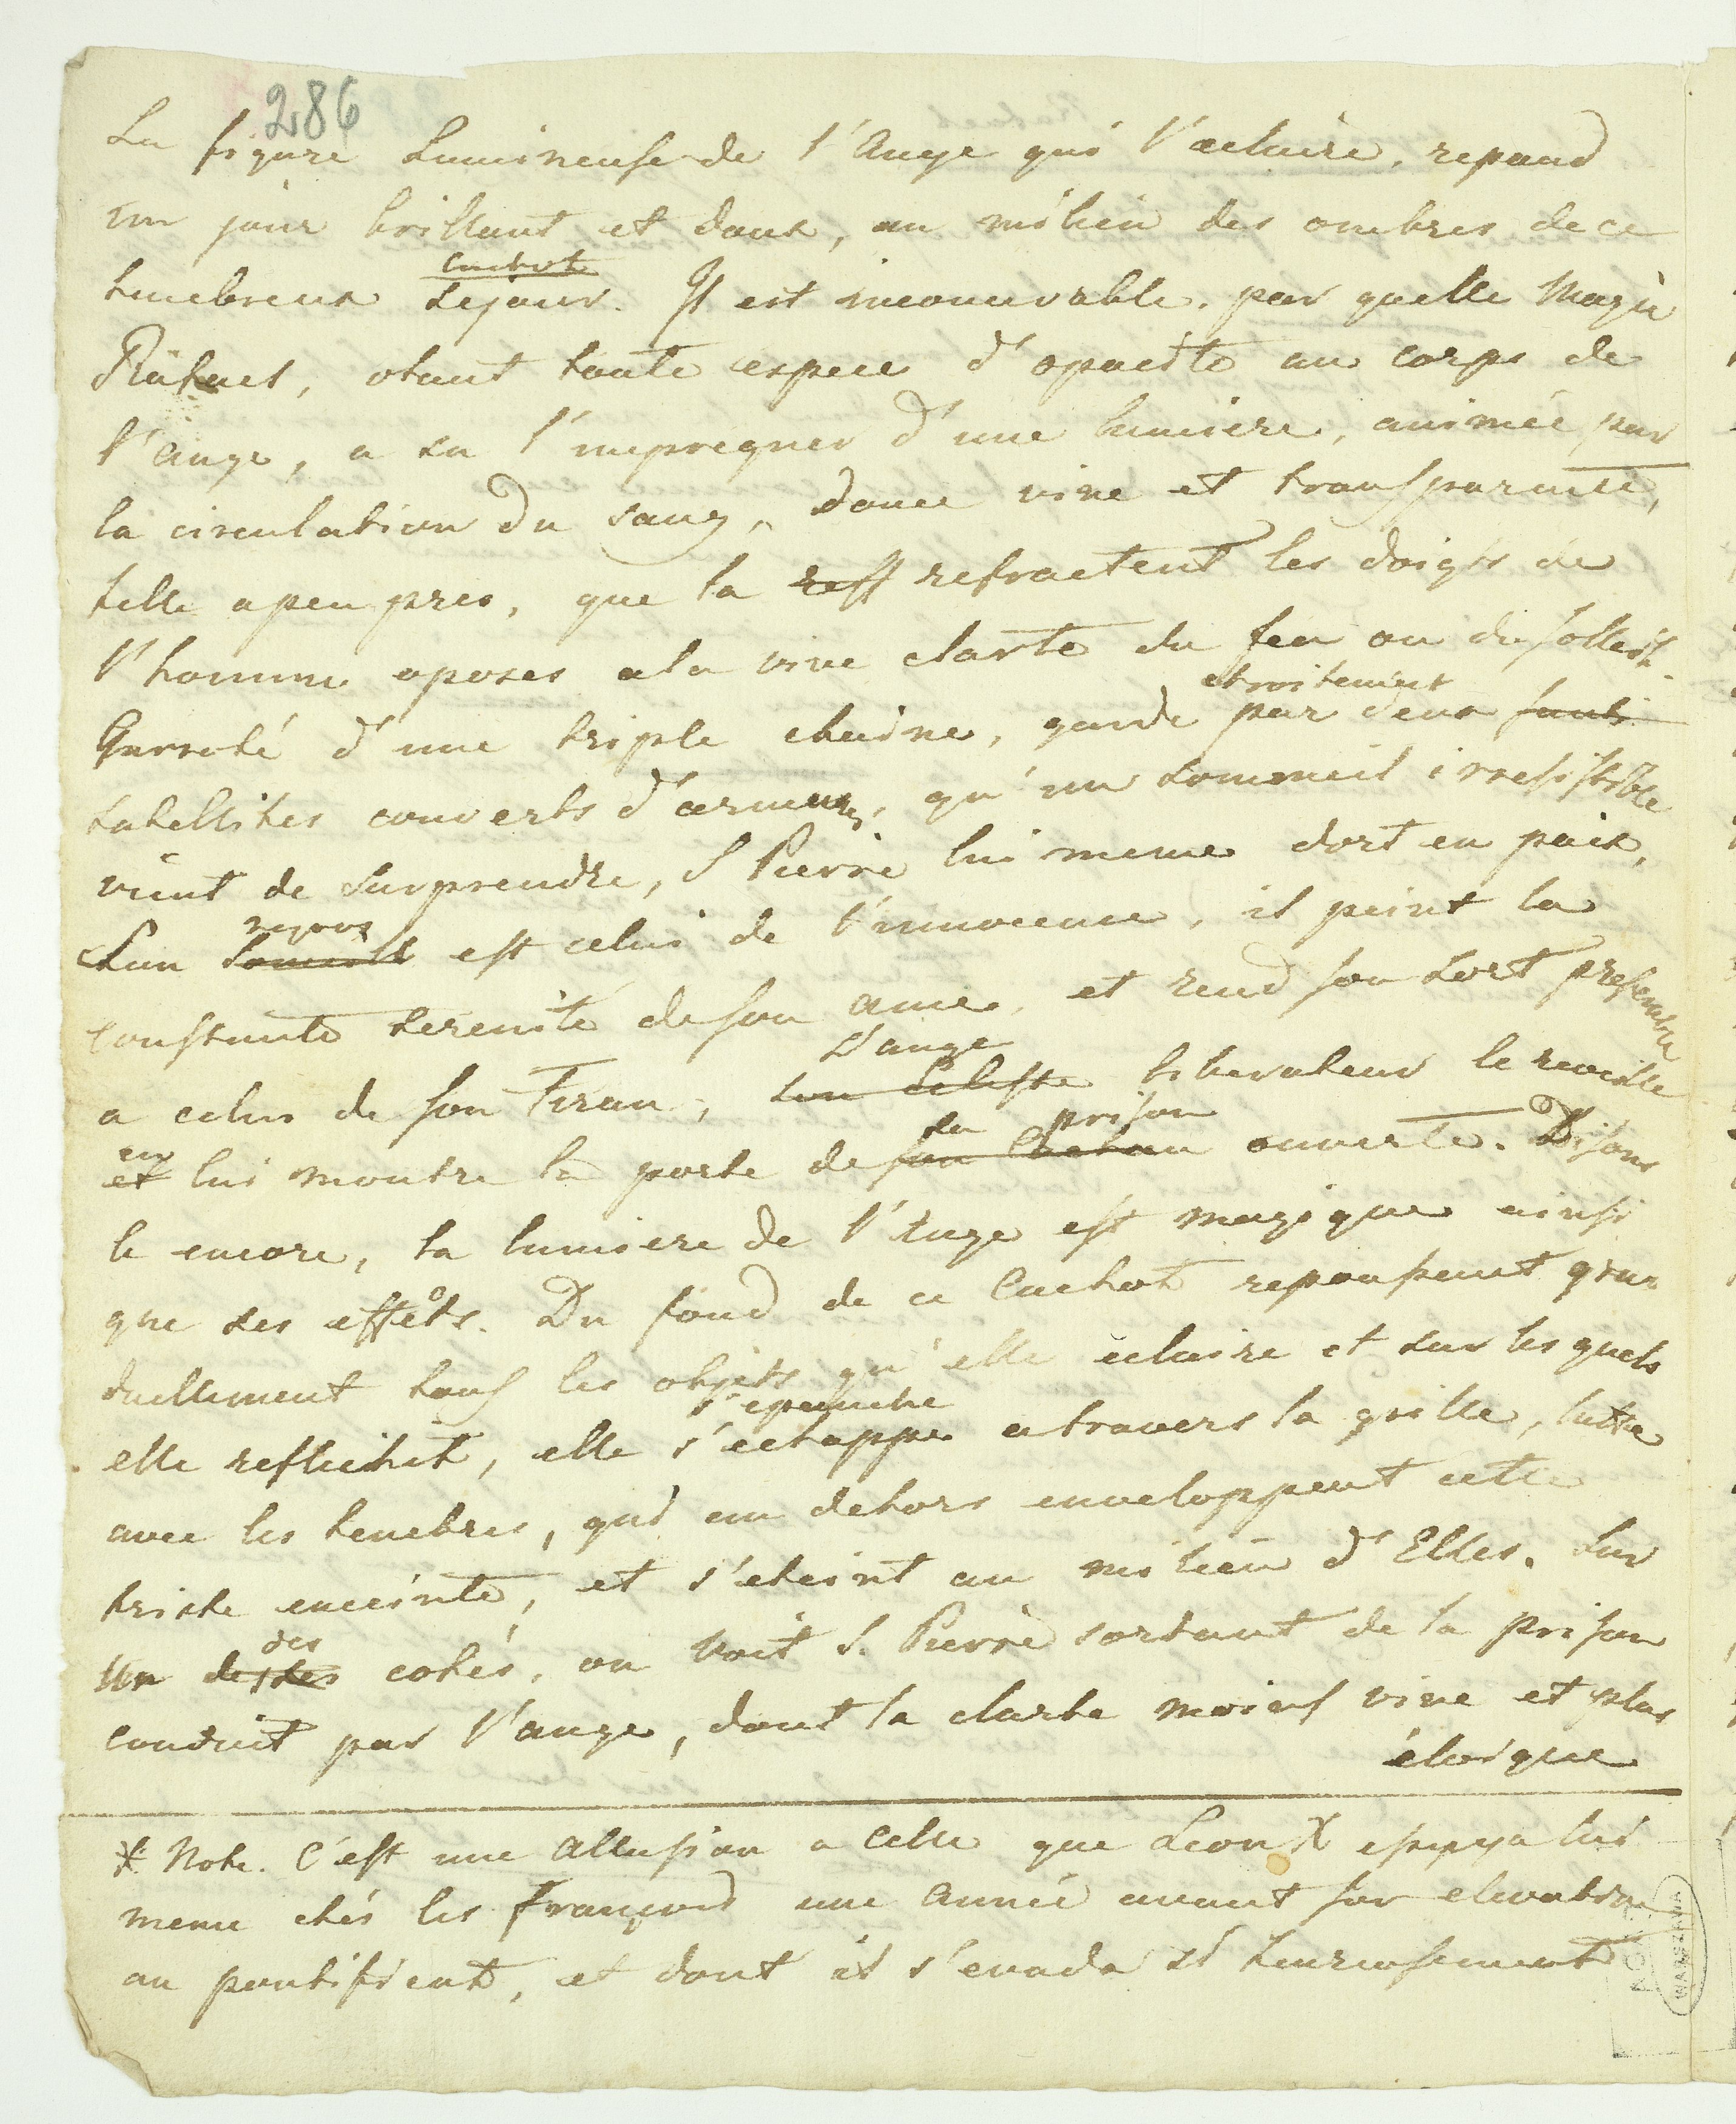 286
La figure Lumineuse de l'Ange qui l'aeclaire, repand
un jour brillant et doux, au milieu des ombres de ce
cachot
tenebreux Sejour. Il est inconcevable, par quelle Magie
Rafael, otant toute espece d'opacité au corps de
l'ange, a su l'impregner d'une lumiere, animée par
la circulation du sang, douce vive et transparente,
telle apeu pres, que la reff refractent les doigts de
l'homme oposes a la vive clarté du feu ou du solleil.
etroitement
Garroté d'une triple chaine, gardé par deux
satellites couverts d'armures, qu'un sommeil irresistible
vient de surprendre, S Pierre lui meme dort en paix,
repos
Son Someill est celui de l'innocence, il peint la
constante serenité de son ame, et rend son sort preferable
L'ange
a celui de son Tiran, son Celeste liberateur le reveille
la prison
en
et lui montre la porte de son Cachau ouverte. Disons
le encore, la lumiere de l'Ange est magique ainsi
que ses effets. Du fond de ce Cachot repoussant gra-
duellement tous les objets qu'elle eclaire et sur les quels
s'epanche
elle reflechit, elle s'echappe a travers la grille, lutte
avec les tenebres, qui en dehors enveloppent cette
triste enceinte, et s'eteint au milieu d'Elles. Sur
des
un de ses cotés, on Voit S. Pierre sortant de la prison
conduit par l'ange, dont la clarte moins vive et plus
éloigne
* Note. C'est une allusion a Celle que Leon X essuya lui
meme chés les François une Année avant son elevation
au pontificat, et dont il s'evada si heureusement
WARSZAWA